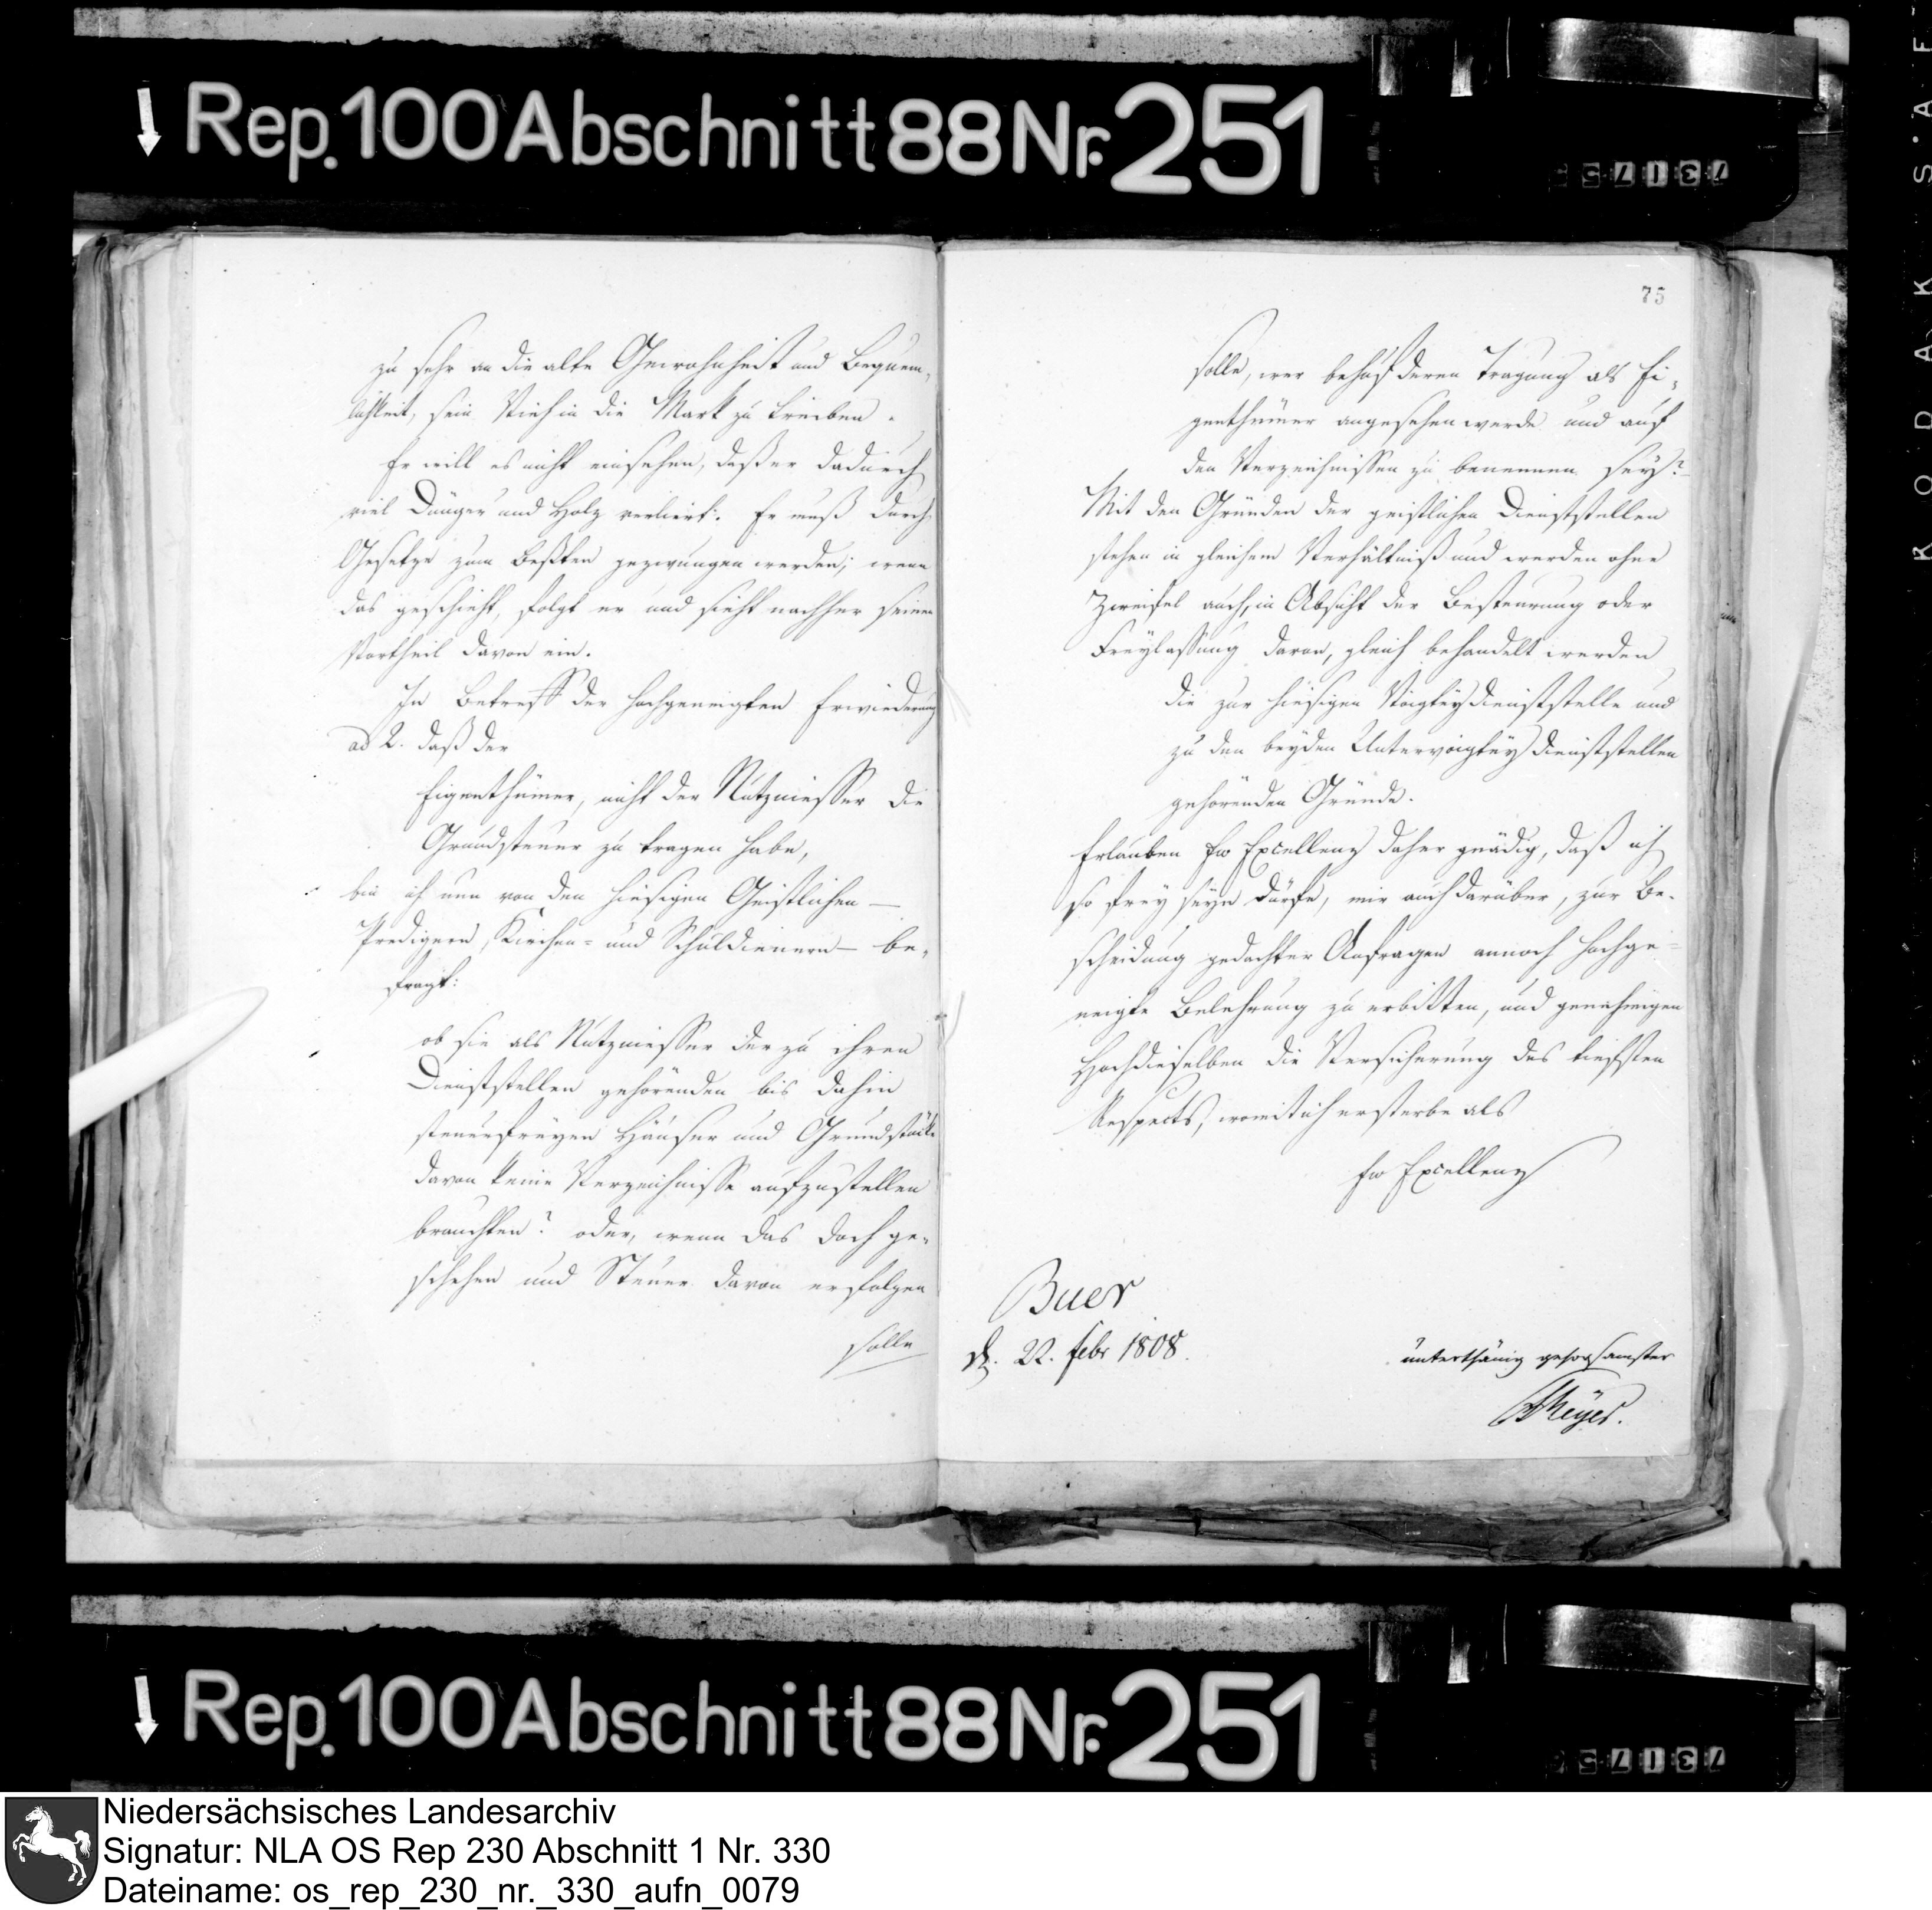 Rep. 100 Abschnitt 88 Nr. 251
73175
KODAK SAFE
zu sehr an die alte Gewohnheit und Bequem-
lichkeit, sein Vieh in die Mark zu treiben.
Er will es nicht einsehen, daß er dadurch
viel Dünger und Holz verliert. Er muß durch
Gesetze zum Beßten gezwungen werden; wenn
das geschieht, folgt er und sieht nachher seinen
Vortheil davon ein.
In Betreff der hochgeneigten Erwiederung
ad 2. daß der
Eigenthümer, nicht der Nutznießer die
Grundsteuer zu tragen habe,
bin ich nun von den hiesigen Geistlichen —
Predigern, Kirchen- und Schuldienern — be-
fragt:
ob sie als Nutznießer der zu ihren
Dienststellen gehörenden bis dahin
steuerfreyen Häuser und Grundstücke
davon keine Verzeichnisse aufzustellen
brauchten? oder, wenn das doch ge-
schehen und Steuer davon erfolgen
solle
75
solle, wer behuf deren Tragung als Ei-
genthümer angesehen werde und auf
den Verzeichnissen zu benennen sey?
Mit den Gründen der geistlichen Dienststellen
stehen in gleichem Verhältniß und werden ohne
Zweifel auch, in Absicht der Besteurung oder
Freylassung davon, gleich behandelt werden
die zur hiesigen Voigteydienststelle und
zu den beyden Untervoigteydienststellen
gehörenden Gründe.
Erlauben Ew Excellenz daher gnädig, daß ich
so frey seyn dürfe, mir auch darüber, zur Be-
scheidung gedachter Anfragen annoch hochge-
neigte Belehrung zu erbitten, und genehmigen
Hochdieselben die Versicherung des tiefsten
Respects, womit ich ersterbe als
Ew Excellenz
Buer
d. 22. Febr 1808.
unterthänig gehorsamster
Meyer.
Rep. 100 Abschnitt 88 Nr. 251
73175
Niedersächsisches Landesarchiv
Signatur: NLA OS Rep 230 Abschnitt 1 Nr. 330
Dateiname: os_rep_230_nr._330_aufn_0079